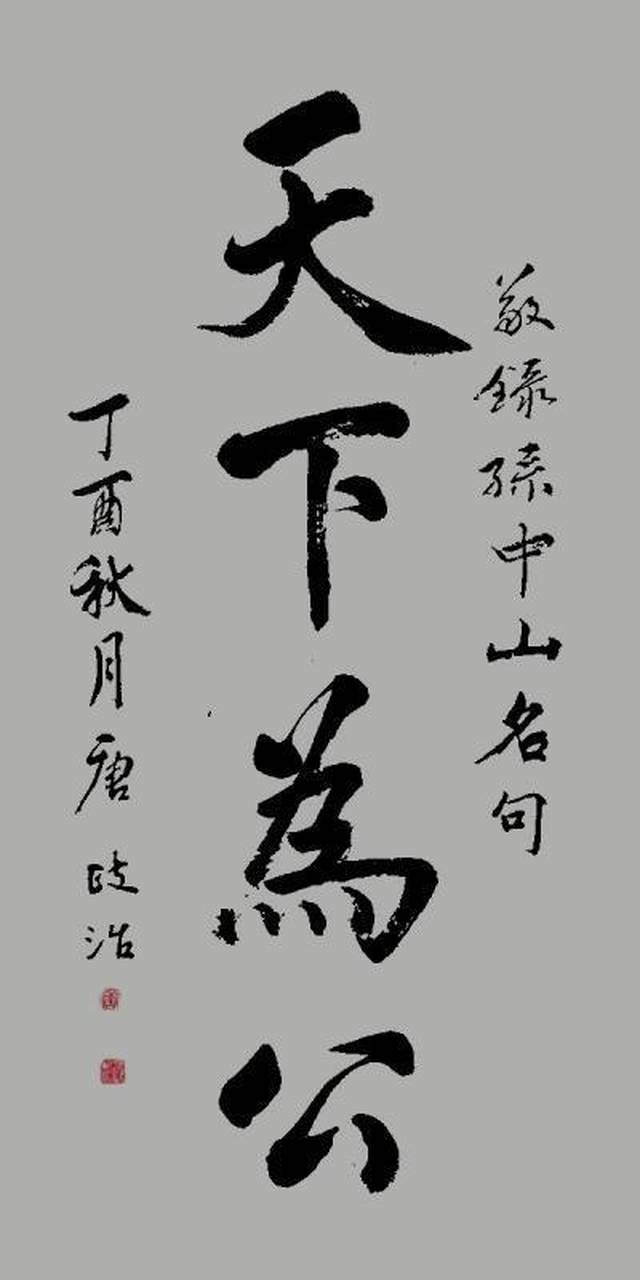 敬錄孫中山名句
天下為公
丁酉秋月唐政浩